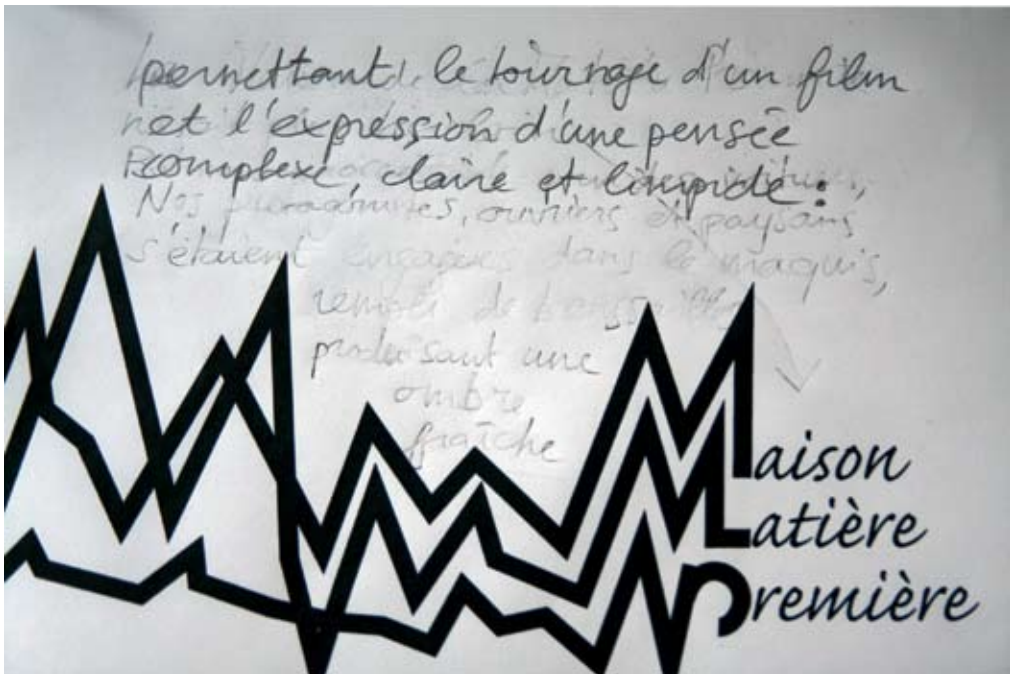 permettant le tournage d'un film
et l'expression d'une pensée
complexe, claire et limpide :
Nos protagonistes, ouvriers et paysans
s'étaient engagés dans le maquis,
rempli de broussailles
produisant une
ombre
fraîche
Maison
Matière
Première